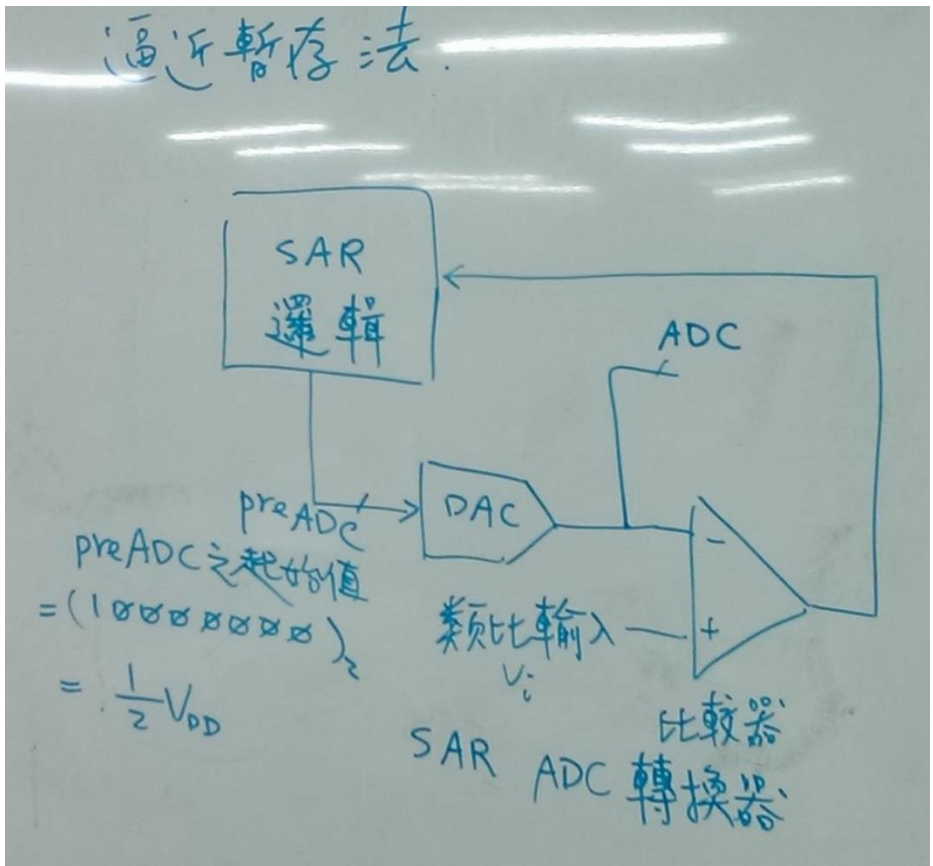 逼近暫存法.
SAR
邏輯
ADC
preADC
DAC
preADC之起始值
=(10000000)₂
= 1/2 VDD
-
類比輸入
Vi
+
比較器
SAR ADC 轉換器